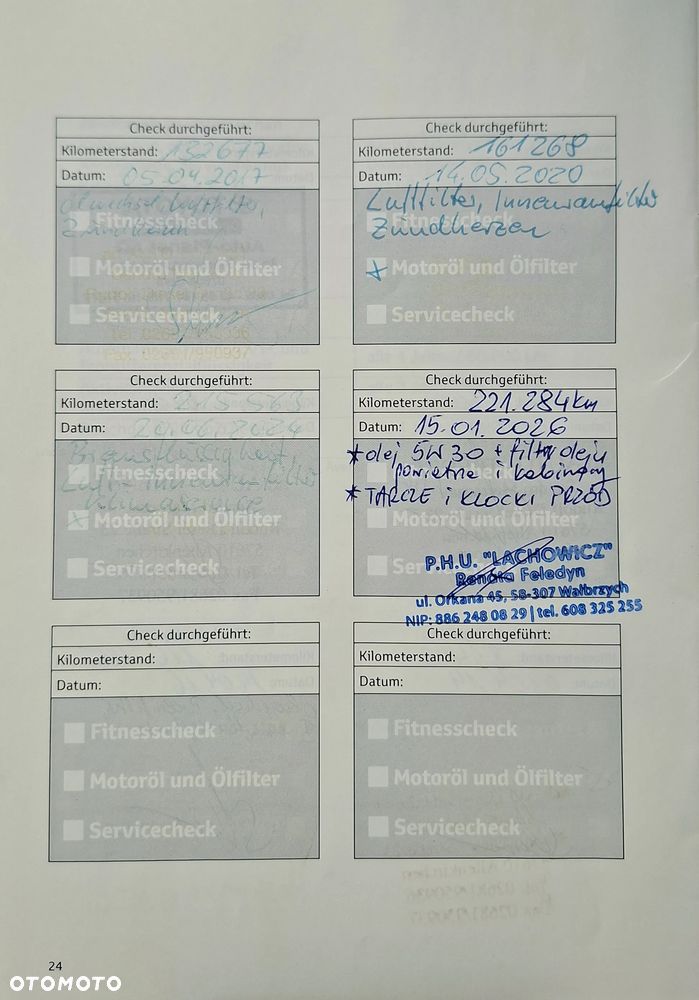 Check durchgeführt:
Kilometerstand: 132677
Datum: 05.04.2017
Ölwechsel, Luftfilter,
Fitnesscheck
Motoröl und Ölfilter
Servicecheck
Check durchgeführt:
Kilometerstand: 161268
Datum: 14.05.2020
Luftfilter, Innenraumfilter
Fitnesscheck
Zündkerzen
Motoröl und Ölfilter
Servicecheck
Check durchgeführt:
Kilometerstand: 215563
Datum: 20.06.2024
Bremsflüssigkeit,
Fitnesscheck
Luft- Innenraumfilter
Klimaservice
Motoröl und Ölfilter
Servicecheck
Check durchgeführt:
Kilometerstand: 221.284km
Datum: 15.01.2026
* olej 5W30 + filtry oleju
powietrza i kabinowy
* TARCZE i KLOCKI PRZÓD
P.H.U. "LACHOWICZ"
Renata Feledyn
ul. Orkana 45, 58-307 Wałbrzych
NIP: 886 248 08 29 | tel. 608 325 255
Check durchgeführt:
Kilometerstand:
Datum:
Fitnesscheck
Motoröl und Ölfilter
Servicecheck
Check durchgeführt:
Kilometerstand:
Datum:
Fitnesscheck
Motoröl und Ölfilter
Servicecheck
24
OTOMOTO